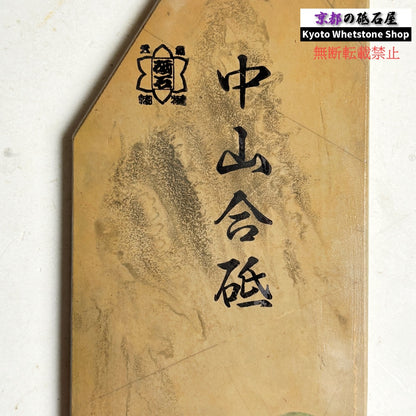 京都の砥石屋
Kyoto Whetstone Shop
無断転載禁止
中山合砥
砥石